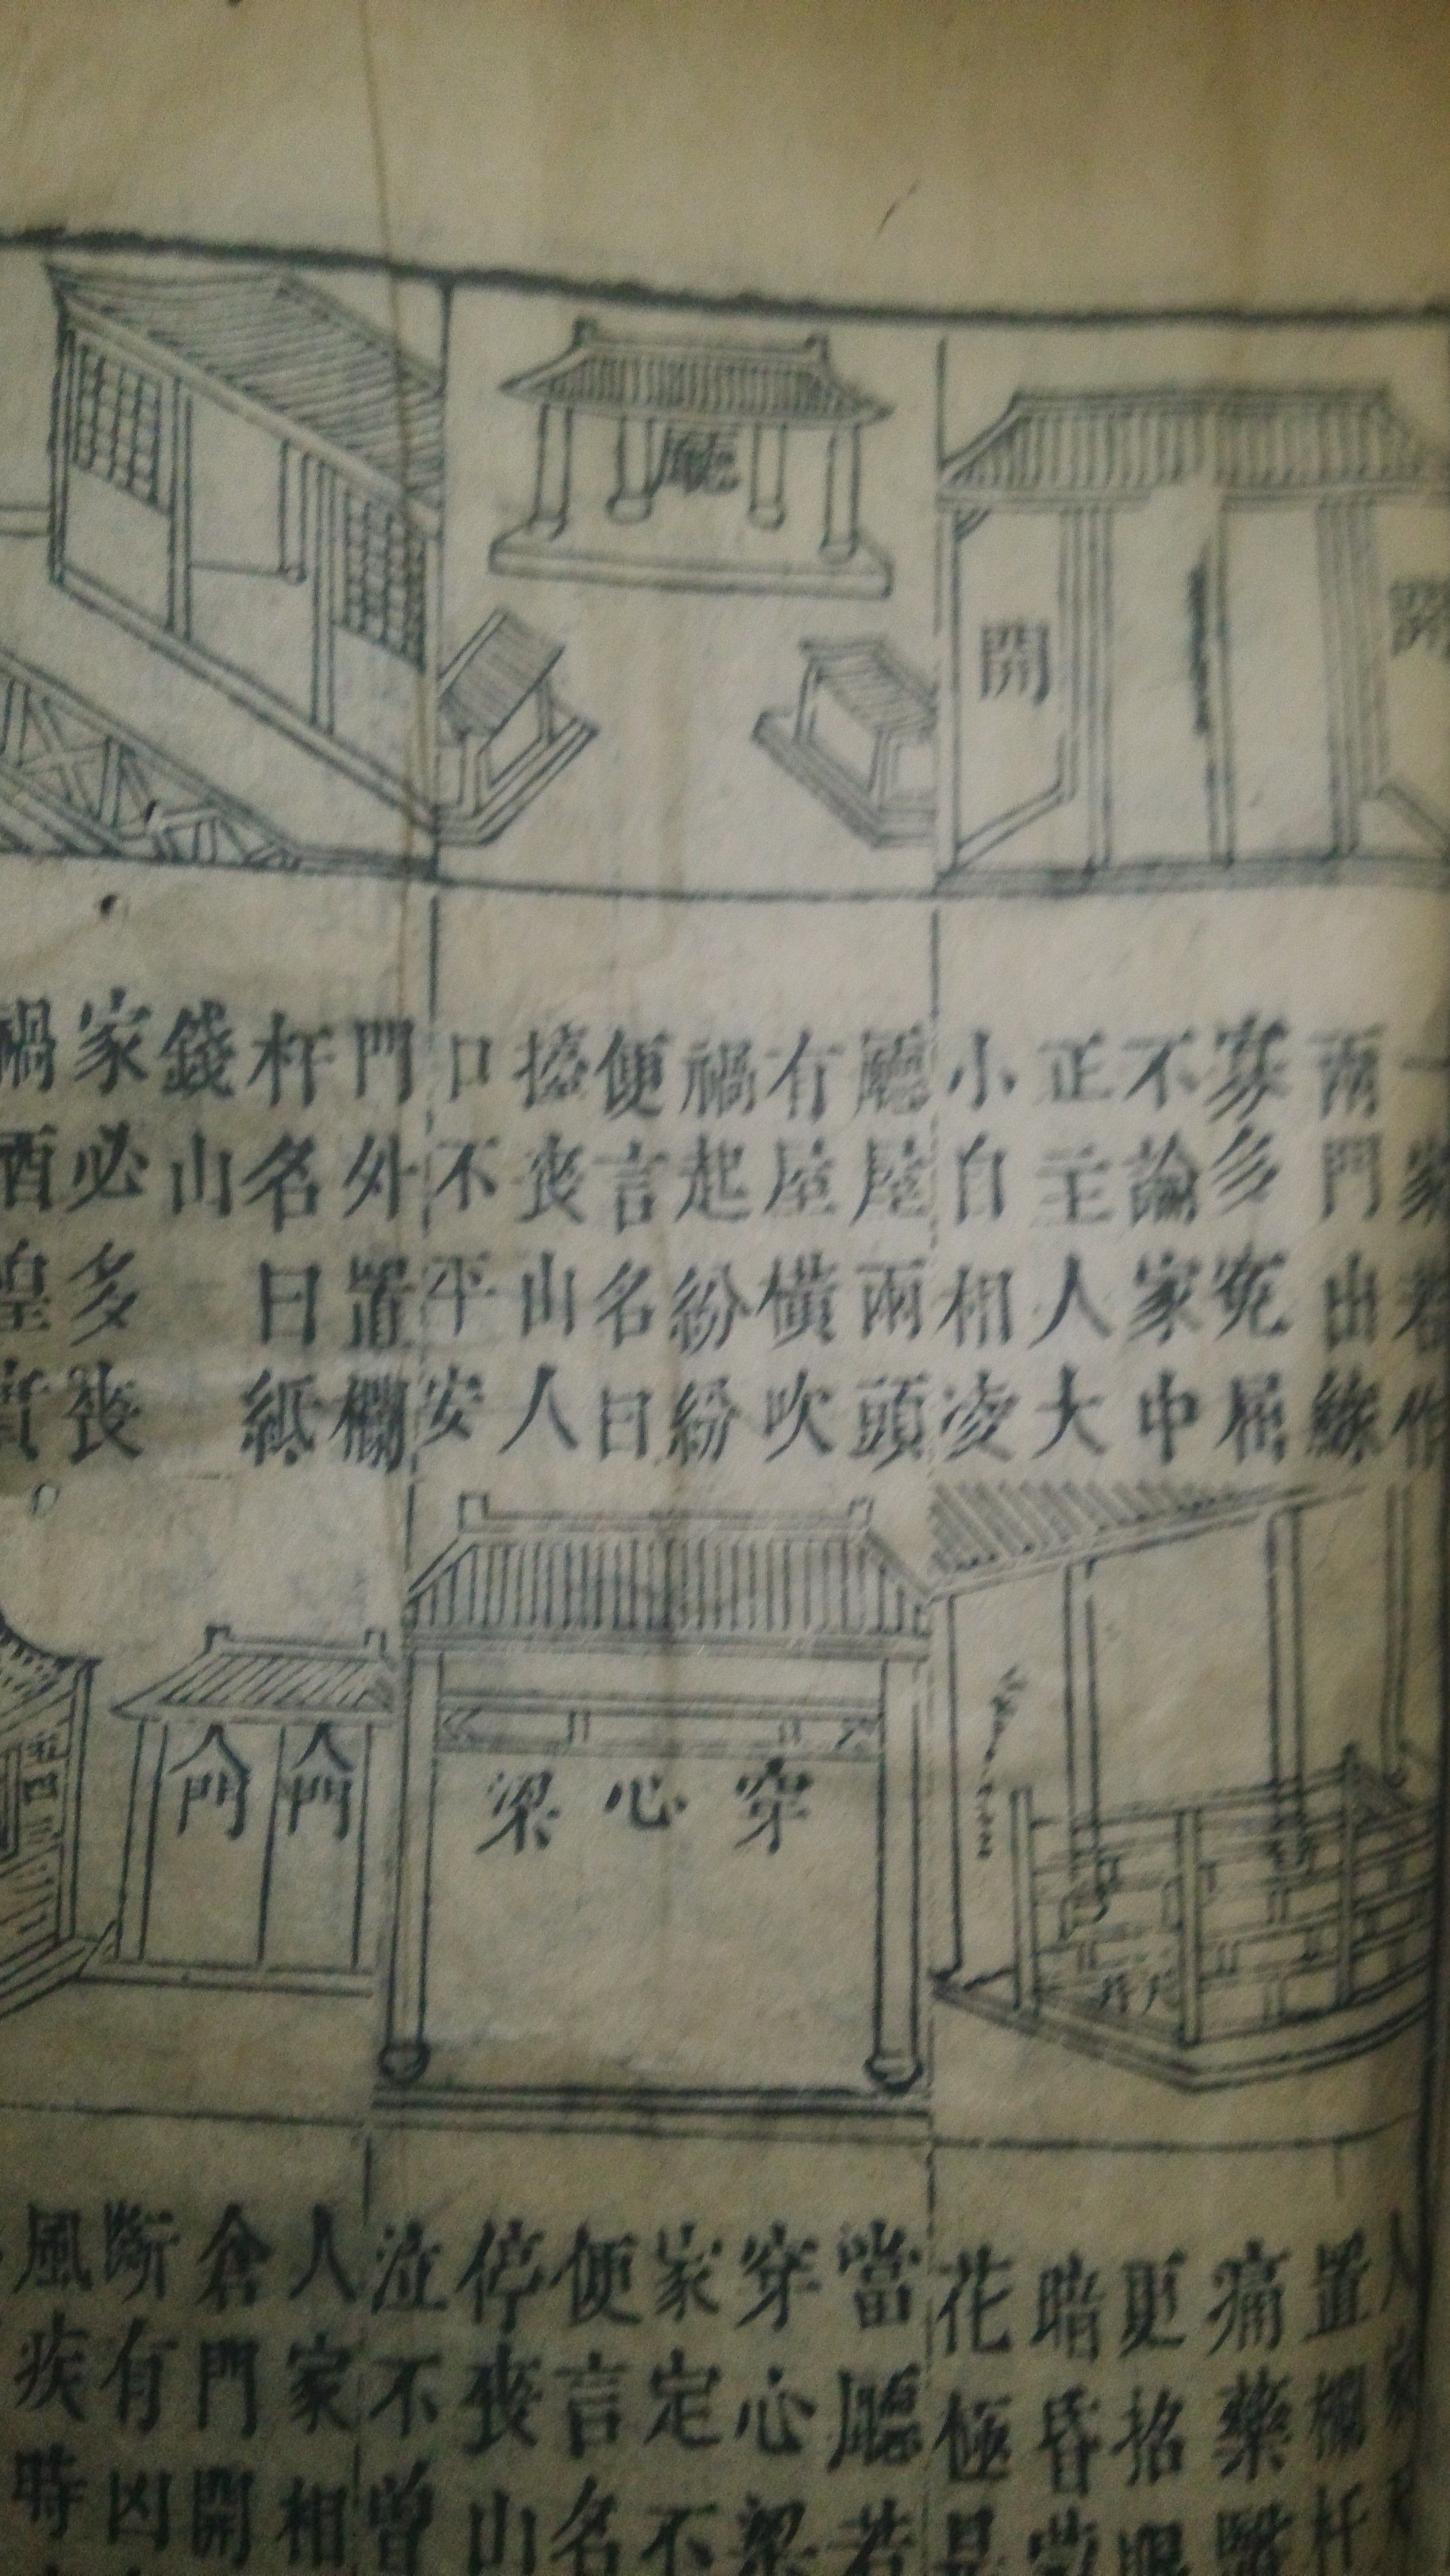 開
開
廳
一家若作
兩門出鰥
寡多冤屈
不論家中
正主人大
小自相凌
廳屋兩頭
有屋橫吹
禍起紛紛
便言名曰
擡喪山人
口不平安
門外置欄
杆名曰紙
錢山
家必多喪
禍恓惶實
穿心梁
門
門
置欄杆
痛藥醫
更招眼
暗昏蒙
花極是
當廳若
穿心梁
家定不
便言名
停喪山
泣不曾
人家相
倉門開
斷有凶
風疾時